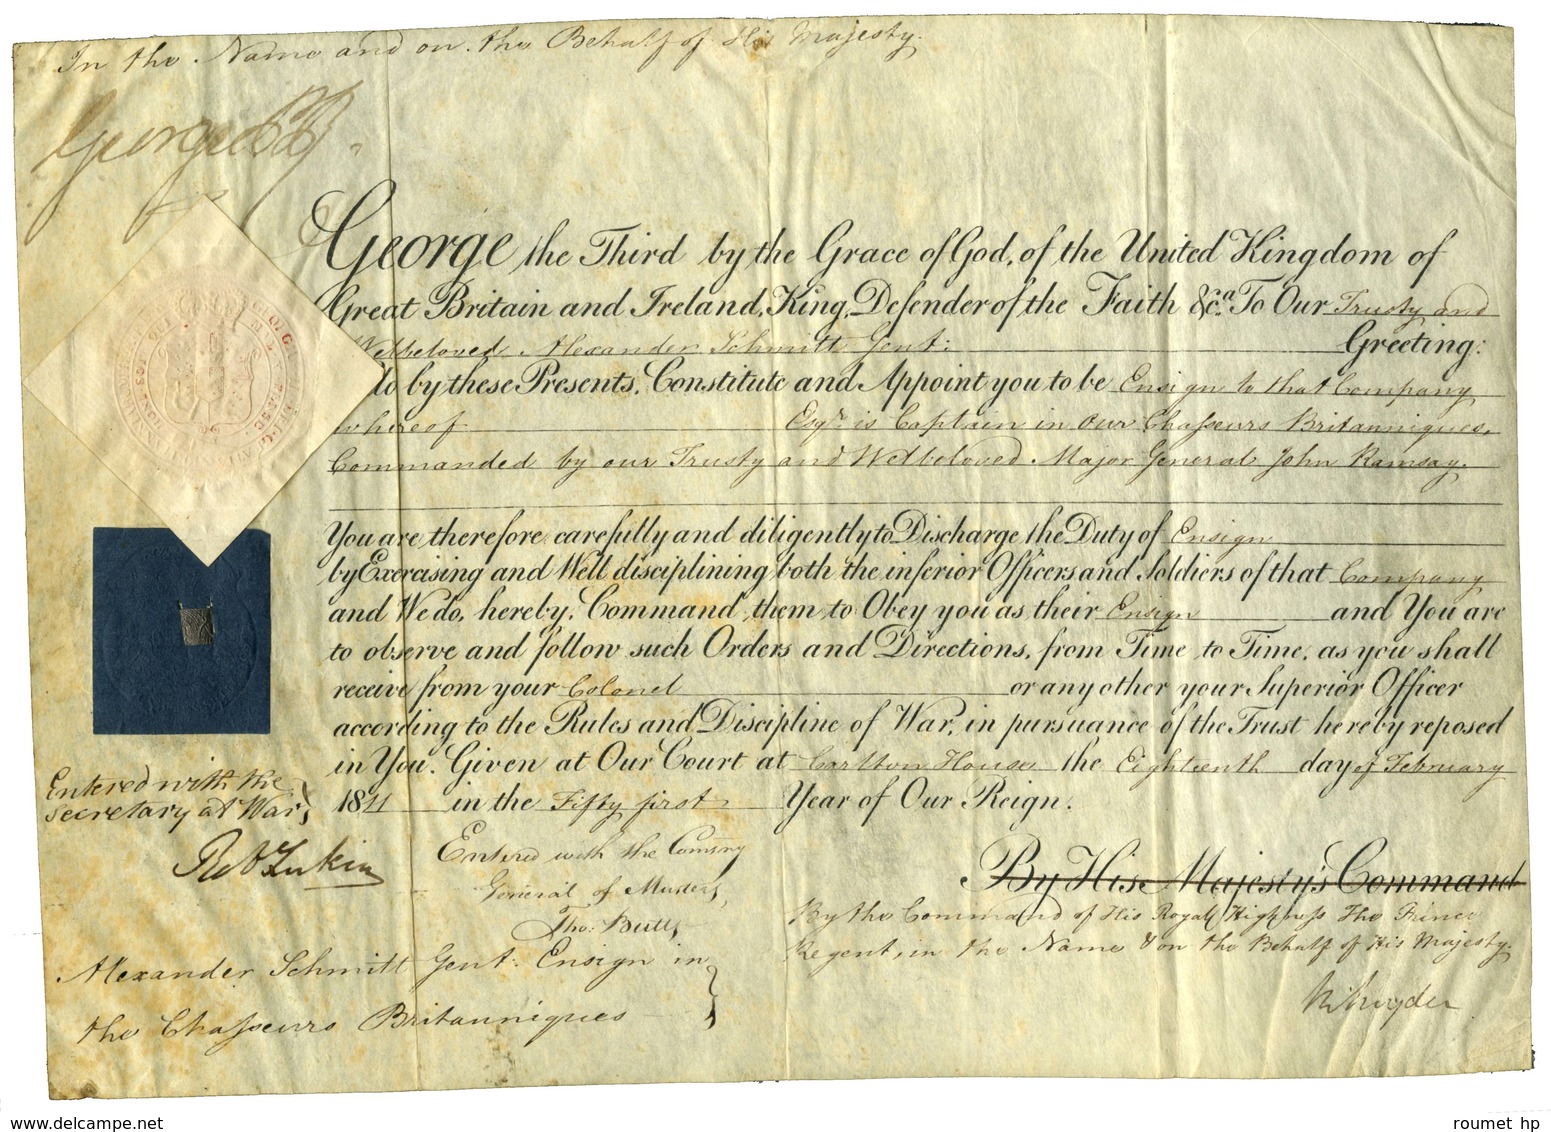 In the Name and on the Behalf of His Majesty.
George PR
George the Third by the Grace of God, of the United Kingdom of
Great Britain and Ireland, King, Defender of the Faith &c.a To Our Trusty and
Welbeloved Alexander Schmitt Gent: Greeting:
do by these Presents, Constitute and Appoint you to be Ensign to that Company
whereof Esqr. is Captain in Our Chasseurs Britanniques,
Commanded by our Trusty and Welbeloved Major General John Ramsay.
You are therefore carefully and diligently to Discharge the Duty of Ensign
by Exercising and Well disciplining both the inferior Officers and Soldiers of that Company
and We do, hereby, Command them to Obey you as their Ensign and You are
to observe and follow such Orders and Directions, from Time to Time, as you shall
receive from your Colonel or any other your Superior Officer
according to the Rules and Discipline of War, in pursuance of the Trust hereby reposed
in You. Given at Our Court at Carlton House the Eighteenth day of February
1811 in the Fifty first Year of Our Reign.
Entered with the
Secretary at War
Rob Lukin
Entered with the Comsry
General of Musters,
Tho: Butts
By His Majesty's Command
By the Command of His Royal Highness The Prince
Regent, in the Name & on the Behalf of His Majesty.
Alexander Schmitt Gent: Ensign in
the Chasseurs Britanniques
www.delcampe.net
roumet hp